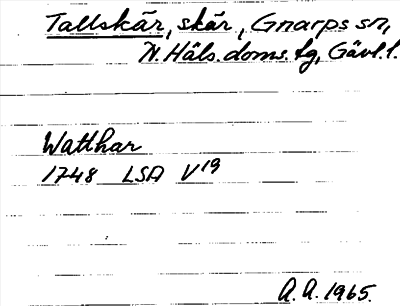 Tallskär, skär, Gnarps sn,
N. Häls. doms. tg, Gävl. l.
Watthar
1748 LSA V19
A. A. 1965.